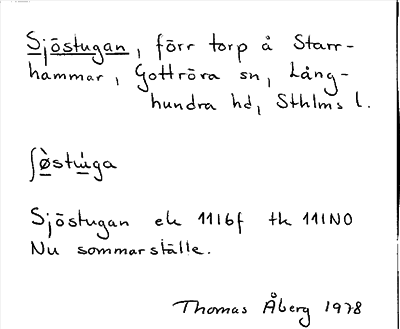 Sjöstugan, förr torp å Starr-
hammar, Gottröra sn, Lång-
hundra hd, Sthlms l.
ʃø̀stu̇ga
Sjöstugan ek 11I6f tk 11INO
Nu sommarställe.
Thomas Åberg 1978